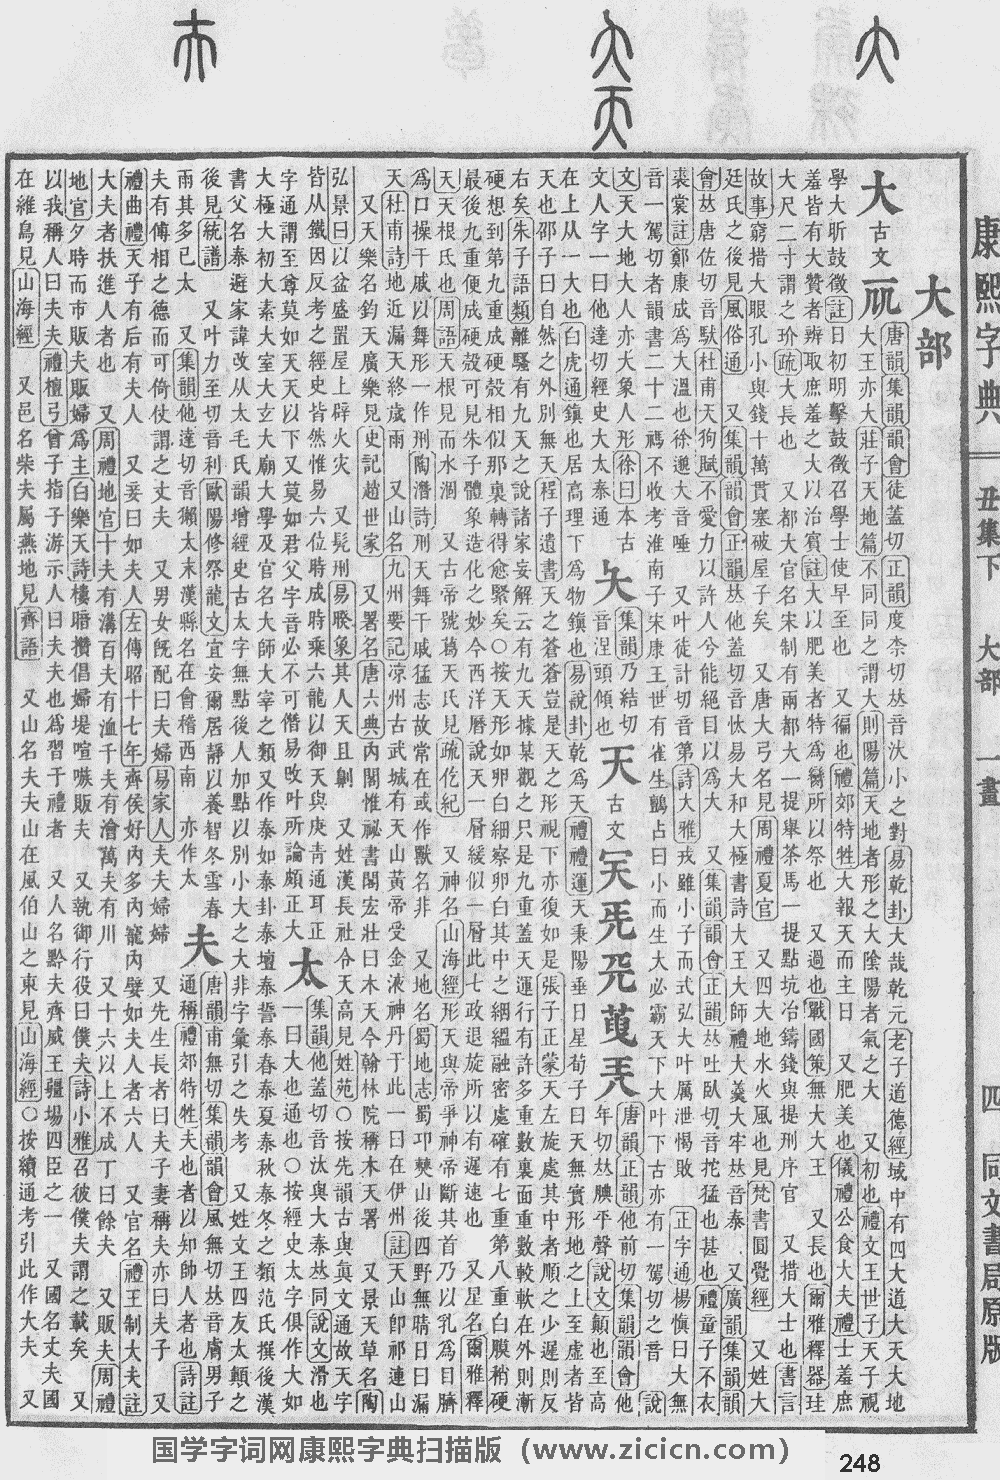 康熙字典 丑集下 大部 一畫 四 同文書局原版
大部
大 古文𠘲 唐韻集韻韻會徒蓋切正韻度柰切𠀤音汏小之對易乾卦大哉乾元老子道德經域中有四大道大天大地
大王亦大莊子天地篇不同同之謂大則陽篇天地者形之大陰陽者氣之大 又初也禮文王世子天子視
學大昕鼓徵註日初明擊鼓徵召學士使早至也 又徧也禮郊特牲大報天而主日 又肥美也儀禮公食大夫禮士羞庶
羞皆有大贊者辨取庶羞之大以治賓註大以肥美者特爲臠所以祭也 又過也戰國策無大大王 又長也爾雅釋器珪
大尺二寸謂之玠疏大長也 又都大官名宋制有兩都大一提舉茶馬一提點坑冶鑄錢與提刑序官 又措大士也書言
故事窮措大眼孔小與錢十萬貫塞破屋子矣 又唐大弓名見周禮夏官 又四大地水火風也見梵書圓覺經 又姓大
廷氏之後見風俗通 又集韻韻會正韻𠀤他蓋切音忲易大和大極書詩大王大師禮大羹大牢𠀤音泰 又廣韻集韻韻
會𠀤唐佐切音馱杜甫天狗賦不愛力以許人兮能絕目以爲大 又集韻韻會正韻𠀤吐臥切音拕猛也甚也禮童子不衣
裘裳註鄭康成爲大溫也徐邈大音唾 又叶徒計切音第詩大雅戎雖小子而式弘大叶厲泄愒敗 正字通楊愼曰大無
音一駕切者韻書二十二禡不收考淮南子宋康王世有雀生鸇占曰小而生大必霸天下大叶下古亦有一駕切之音 說
文天大地大人亦大象人形徐曰本古
文人字一曰他達切經史大太泰通
夨 集韻乃結切
音涅頭傾也
天 古文 唐韻正韻他前切集韻韻會他
年切𠀤腆平聲說文顚也至高
在上从一大也白虎通鎭也居高理下爲物鎭也易說卦乾爲天禮禮運天秉陽垂日星荀子曰天無實形地之上至虛者皆
天也邵子曰自然之外別無天程子遺書天之蒼蒼豈是天之形視下亦復如是張子正蒙天左旋處其中者順之少遲則反
右矣朱子語類離騷有九天之說諸家妄解云有九天據某觀之只是九重蓋天運行有許多重數裏面重數較軟在外則漸
硬想到第九重成硬殼相似那裏轉得愈緊矣○按天形如卵白細察卵白其中之絪縕融密處確有七重第八重白膜稍硬
最後九重便成硬殼可見朱子體象造化之妙今西洋曆說天一層緩似一層此七政退旋所以有遲速也 又星名爾雅釋
天天根氐也周語天根見而水涸 又古帝號葛天氏見疏仡紀 又神名山海經形天與帝爭神帝斷其首乃以乳爲目臍
爲口操干戚以舞形一作刑陶潛詩刑天舞干戚猛志故常在或作獸名非 又地名蜀地志蜀卭僰山後四野無晴日曰漏
天杜甫詩地近漏天終歲雨 又山名九州要記涼州古武城有天山黃帝受金液神丹于此一曰在伊州註天山卽祁連山
又天樂名鈞天廣樂見史記趙世家 又署名唐六典內閣惟祕書閣宏壯曰木天今翰林院稱木天署 又景天草名陶
弘景曰以盆盛置屋上辟火灾 又髡刑易睽象其人天且劓 又姓漢長社令天高見姓苑○按先韻古與眞文通故天字
皆从鐵因反考之經史皆然惟易六位時成時乘六龍以御天與庚靑通耳正
字通謂至尊莫如天天以下又莫如君父字音必不可僭易攺叶所論頗正
太 集韻他蓋切音汰與大泰𠀤同說文滑也
一曰大也通也○按經史太字俱作大如
大極大初大素大室大玄大廟大學及官名大師大宰之類又作泰如泰卦泰壇泰誓泰春泰夏泰秋泰冬之類范氏撰後漢
書父名泰避家諱改从太毛氏韻增經史古太字無點後人加點以別小大之大非字彙引之失考 又姓文王四友太顚之
後見統譜 又叶力至切音利歐陽修祭龍文宜安爾居靜以養智冬雪春
雨其多已太 又集韻他達切音獺太末漢縣名在會稽西南 亦作太
夫 唐韻甫無切集韻韻會風無切𠀤音膚男子
通稱禮郊特牲夫也者以知帥人者也詩註
夫有傅相之德而可倚仗謂之丈夫 又男女旣配曰夫婦易家人夫夫婦婦 又先生長者曰夫子妻稱夫亦曰夫子 又
禮曲禮天子有后有夫人 又妾曰如夫人左傳昭十七年齊侯好內多內寵內嬖如夫人者六人 又官名禮王制大夫註
大夫者扶進人者也 又周禮地官十夫有溝百夫有洫千夫有澮萬夫有川 又十六以上不成丁曰餘夫 又販夫周禮
地官夕時而市販夫販婦爲主白樂天詩樓暗攢倡婦堤喧嗾販夫 又執御行役曰僕夫詩小雅召彼僕夫謂之載矣 又
以我稱人曰夫夫禮檀弓曾子指子游示人曰夫夫也爲習于禮者 又人名黔夫齊威王疆場四臣之一 又國名丈夫國
在維鳥見山海經 又邑名柴夫屬燕地見齊語 又山名夫夫山在風伯山之東見山海經○按續通考引此作大夫 又
国学字词网康熙字典扫描版（www.zicicn.com）
248